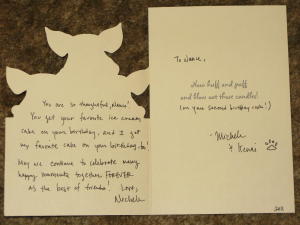 You are so thoughtful, Nance!
You get your favorite ice cream
cake on your birthday, and I get
my favorite cake on your birthday, too!
May we continue to celebrate many
happy moments together FOREVER
as the best of friends! Love,
Michele
To Nance,
Now huff and puff
and blow out those candles!
(on your second birthday cake!)
- Michele
+ Kenai